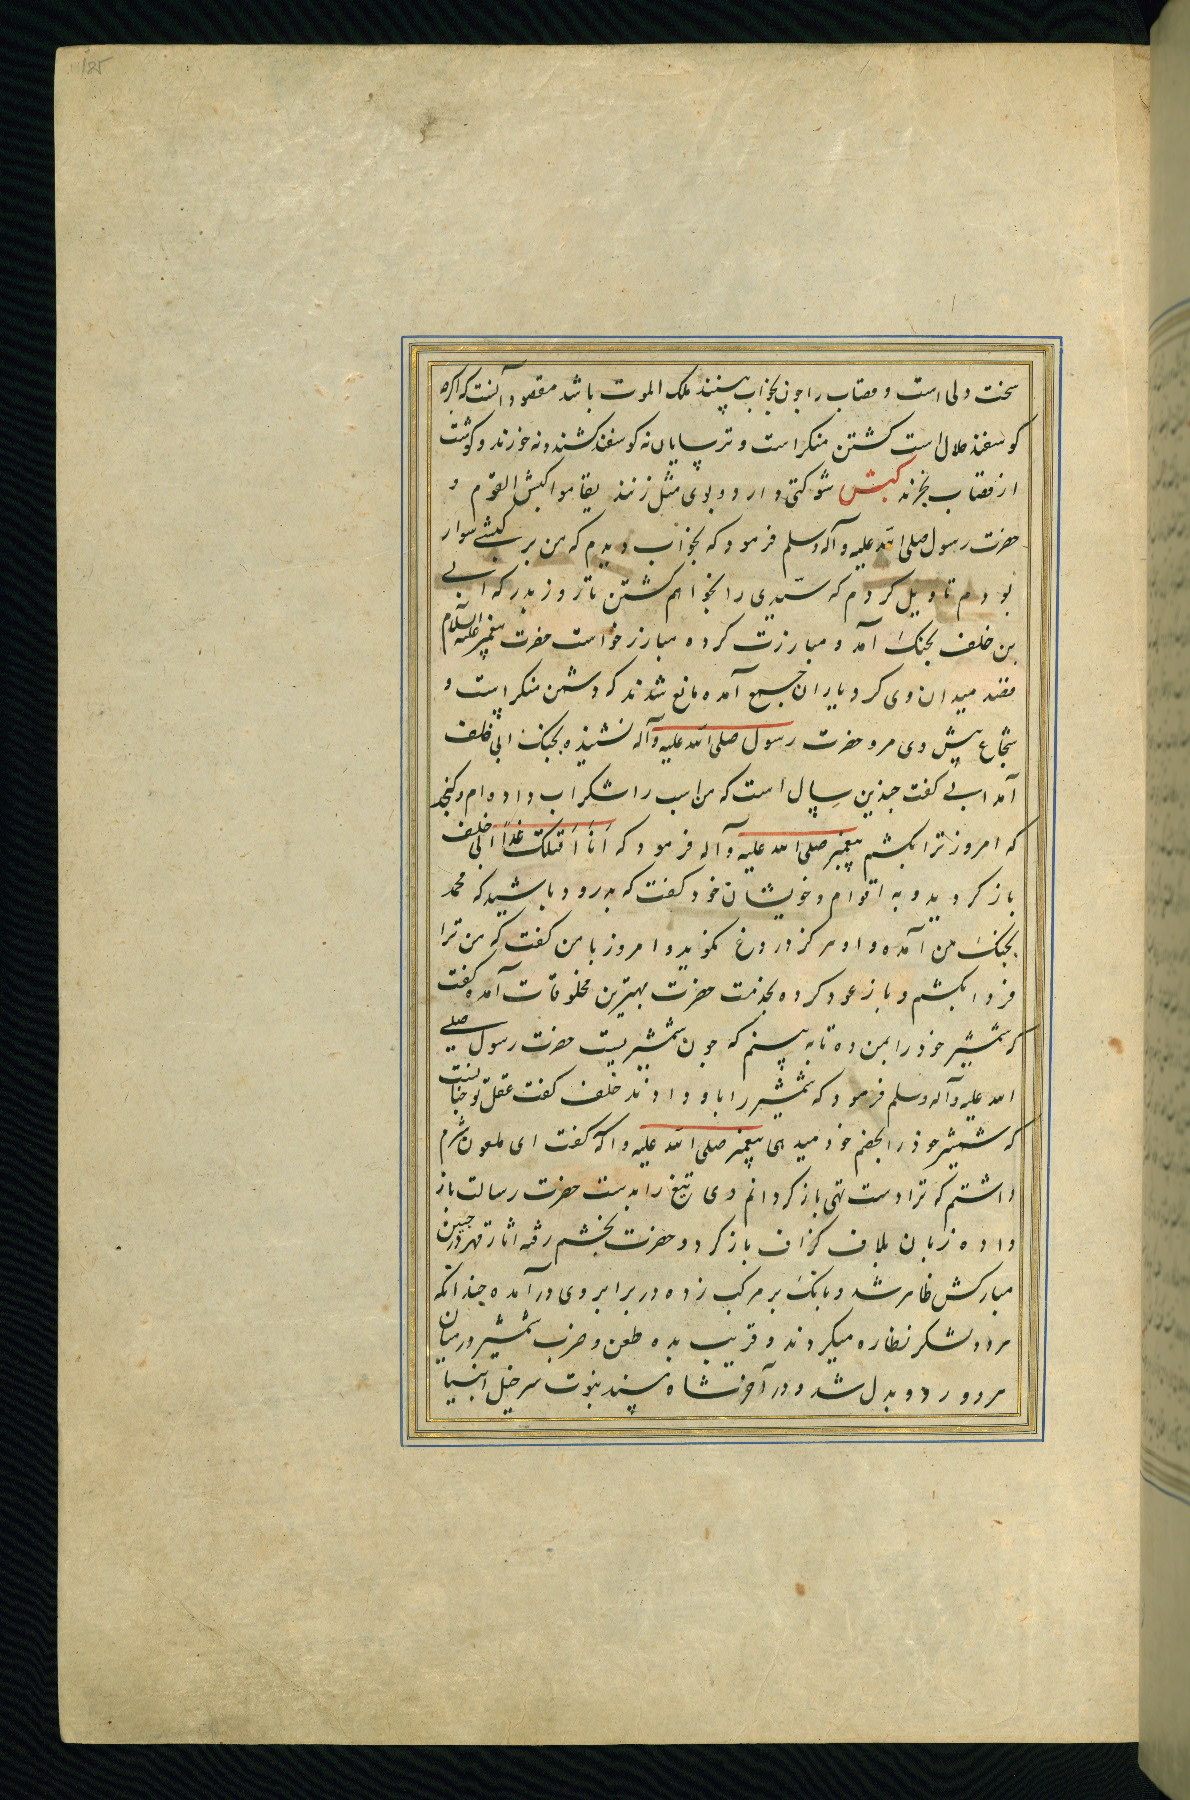 125
سخت دلی است و قصاب را چون بخواب بینند ملک الموت باشد مقصود آنست که اگرچه
کوسفند حلال است کشتن منکر است و ترسایان نه کوسفند کشند و نه خورند و کوشت
از قصاب بخرند کبش شوکتی دارد و بوی مثل زنند یقا هو اکبش القوم و
حضرت رسول صلی الله علیه و آله و سلم فرمود که بخواب دیدم که من بر کبشی سوار
بودم تاویل کردم که سیّدی را بخواهم کشتن تا روز بدر که ابی
بن خلف بجنک آمد و مبارزت کرده مبارز خواست حضرت پیغمبر علیه السلام
قصد میدان وی کرد یاران جمع آمده مانع شدند که دشمن منکر است و
شجاع پیش وی مرو حضرت رسول صلی الله علیه و آله نشنیده بجنک ابی خلف
آمد ابی کفت چندین سال است که من اسب را شکراب داده ام و کنجد
که امروز ترا بکشم پیغمبر صلی الله علیه و آله فرمود که اَنَا اَقتلک غداً ابی خلف
باز کردید و به اقوام و خویشان خود کفت که بدرود باشید که محمد
بجنک من آمده و او هرکز دروغ نکوید و امروز با من کفت که من ترا
فردا بکشم و باز عود کرده بخدمت حضرت بهترین مخلوقات آمده کفت
که شمشیر خود را بمن ده تا به بینم که چون شمشیریست حضرت رسول صلی
الله علیه و آله و سلم فرمود که شمشیر را باو دادند خلف کفت عقل تو چنانست
که شمشیر خود را بخصم خود میدهی پیغمبر صلی الله علیه و آله کفت ای ملعون شرم
داشتم که ترا دست تهی باز کردانم وی تیغ را بدست حضرت رسالت باز
داده زبان بلاف کزاف باز کرد و حضرت بخشم رفته اثار قهر در جبین
مبارکش ظاهر شد و بانک بر مرکب زده در برابر وی در آمده چندانکه
هر دو لشکر نظاره میکردند و قریب بده طعن و ضرب شمشیر در میان
هر دو رد و بدل شد و در آخر شاه مسند نبوت سرخیل انبیا